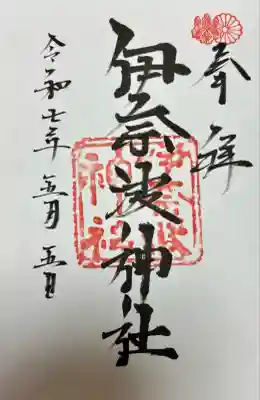 奉拝
伊奈波神社
伊奈波神社
令和七年五月五日